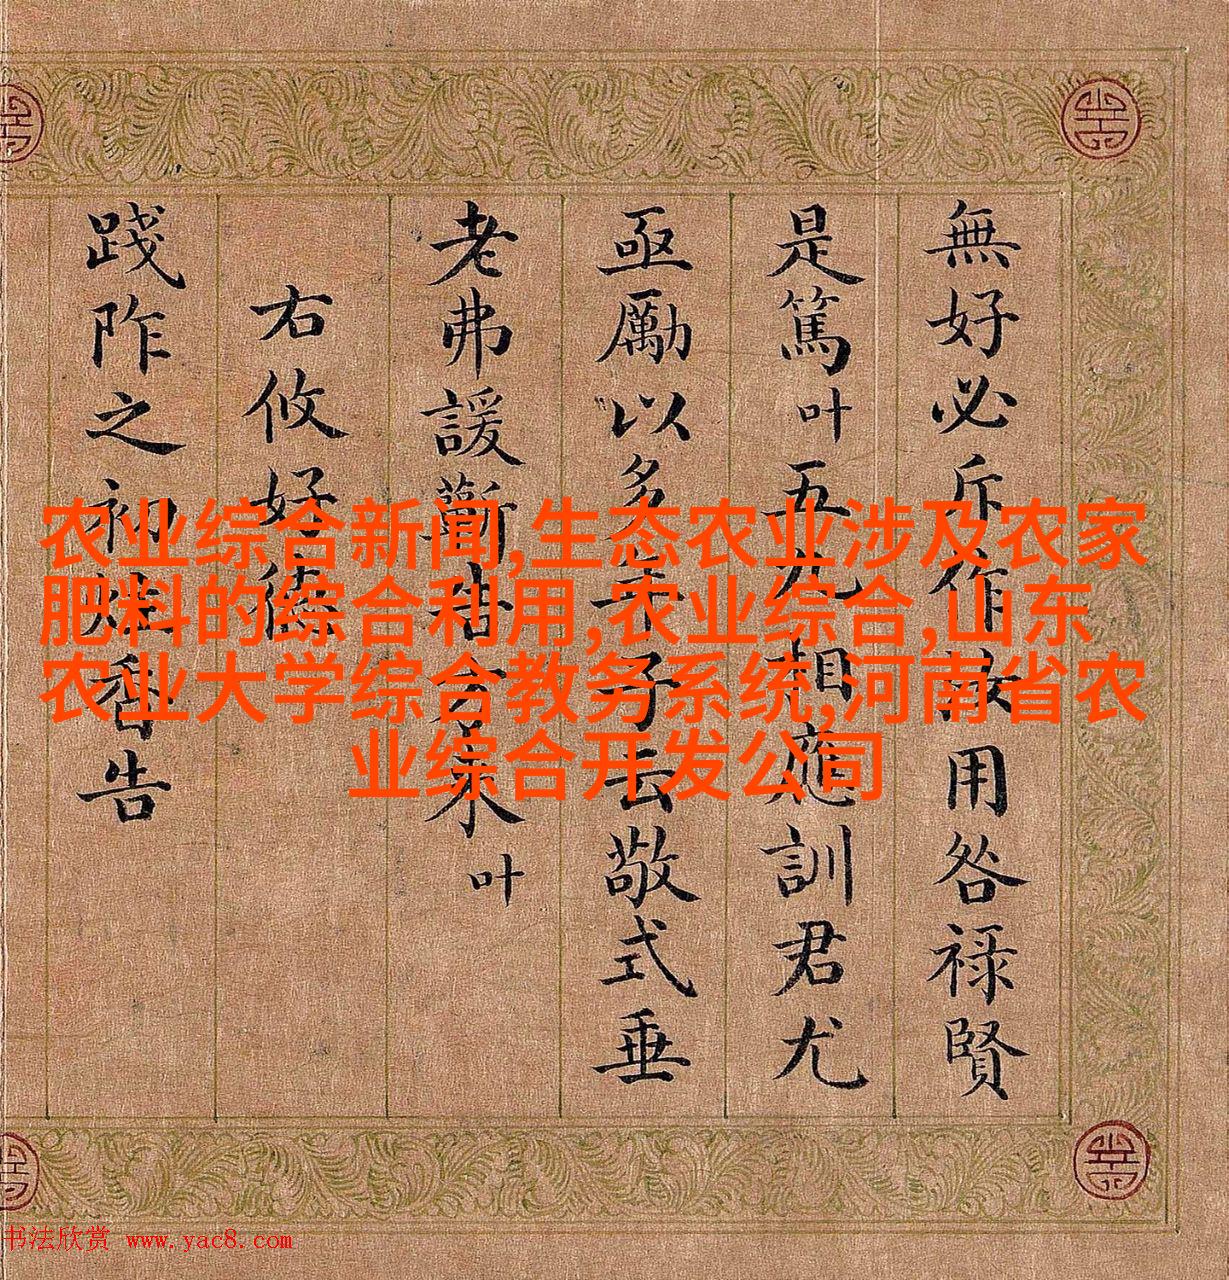 無好必斥作敛用咎禄賢
是篤叶五九相應訓君尤
亟勵以多午子去敬式垂
老弗諼斯
叶
右攸好德
踐阼之初
告
农业综合新闻,生态农业涉及农家
肥料的综合利用,农业综合,山东
农业大学综合教务系统,河南省农
业综合开发公司
书法欣赏 www.yac8.com